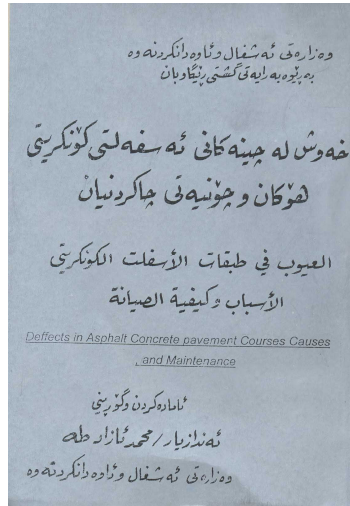 وەزارەتی ئەشغال وئاوەدانکردنەوە
بەڕێوەبەرایەتی گشتی ڕێگاوبان
خەوش لە چینەکانی ئەسفەلتی کۆنکرێتی
هۆکان و چۆنیەتی چاکردنیان
العيوب في طبقات الأسفلت الكونكريتي
الأسباب وكيفية الصيانة
Deffects in Asphalt Concrete pavement Courses Causes
, and Maintenance
ئامادەکردن وگۆڕینی
ئەندازیار/محمد ئازاد طه
وەزارەتی ئەشغال وئاوەدانکردنەوە